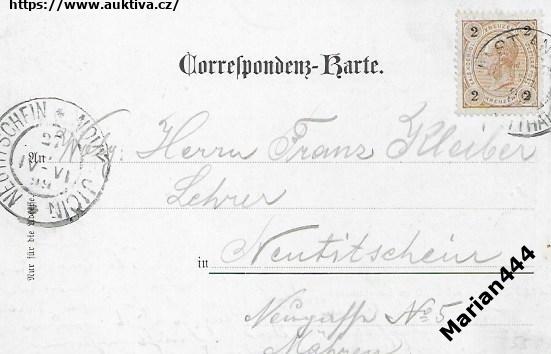 https://www.auktiva.cz/
2 2
2 2
Correspondenz-Karte.
NEUTITSCHEIN * NOVÝ JIČÍN
An
Herrn Franz Kleiber
Lehrer
in Neutitschein
Neugasse No 5
Mähren
Nur für die Adresse.
Marian444